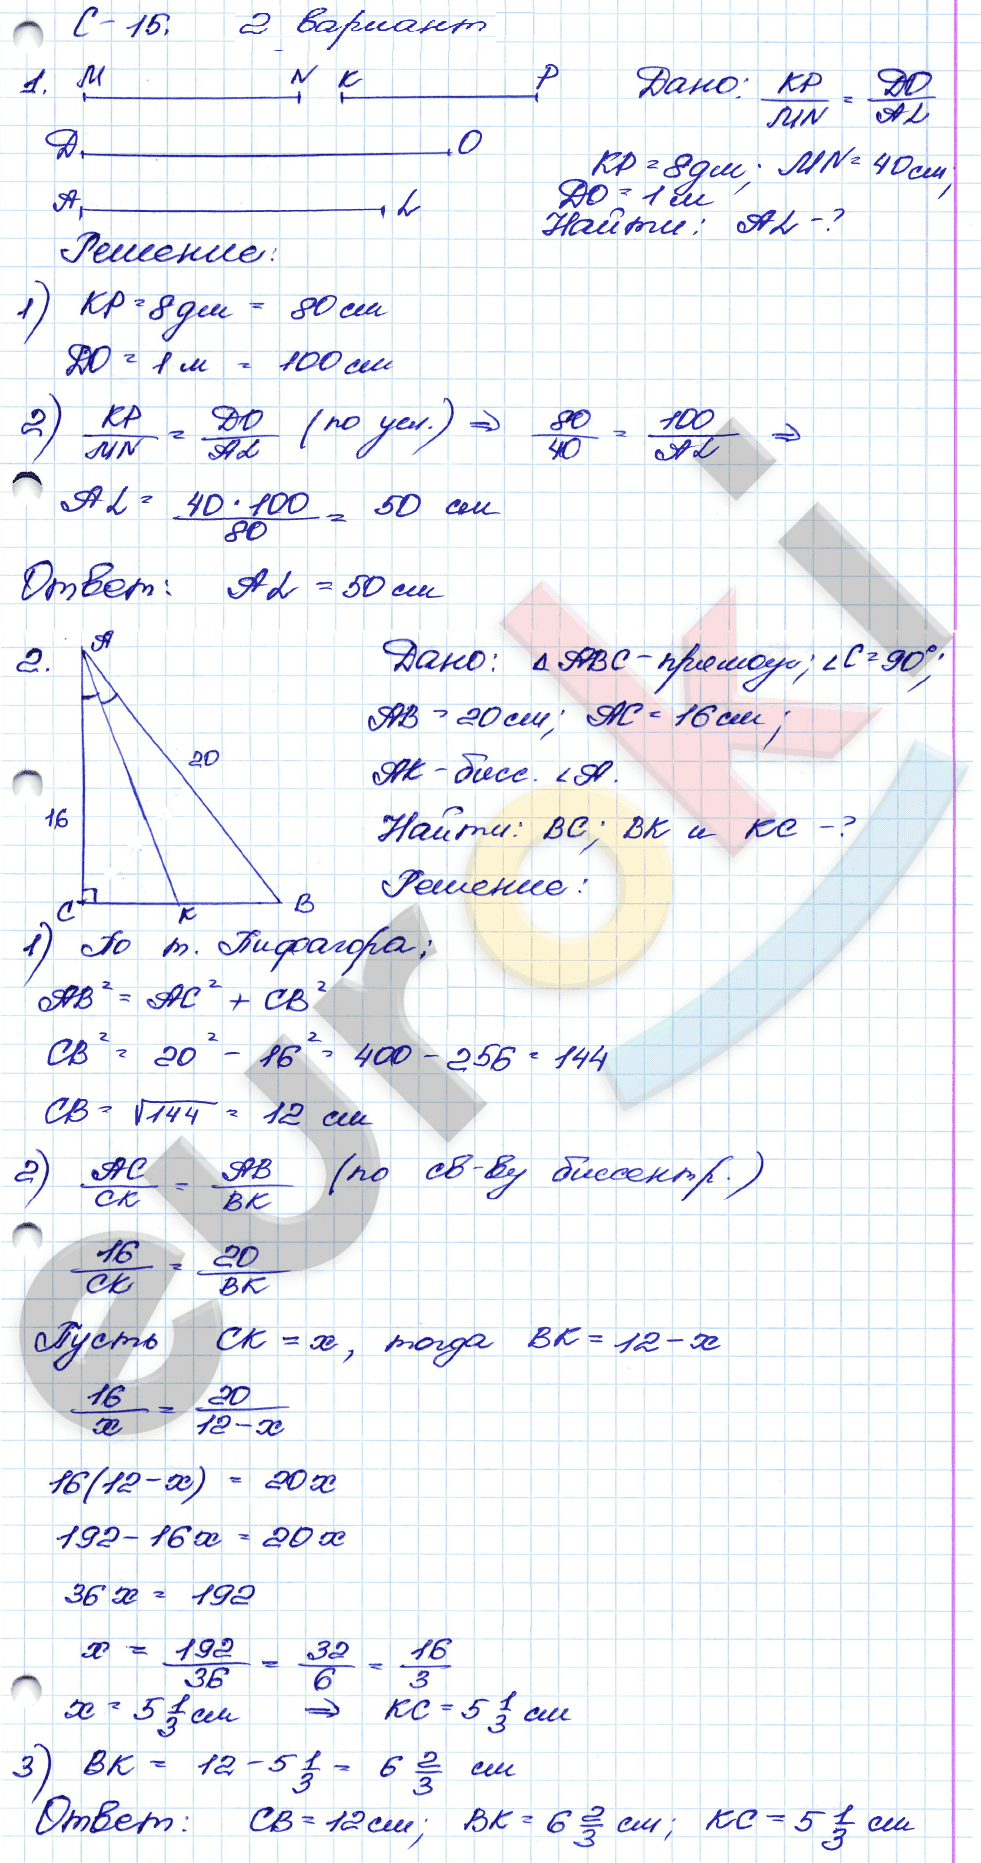 С-15. 2 вариант
1. M N K P Дано: KP/MN = DO/AL
D O KP = 8дм; MN = 40см;
DO = 1м
A L Найти: AL - ?
Решение:
1) KP = 8дм = 80 см
DO = 1м = 100 см
2) KP/MN = DO/AL (по усл.) ⇒ 80/40 = 100/AL ⇒
AL = 40·100/80 = 50 см
Ответ: AL = 50 см
2. A Дано: △ABC - прямоуг; ∠C = 90°;
AB = 20см; AC = 16см;
20 AK - бисс. ∠A.
16 Найти: BC; BK и KC - ?
C K B Решение:
1) По т. Пифагора;
AB² = AC² + CB²
CB² = 20² - 16² = 400 - 256 = 144
CB = √144 = 12 см
2) AC/CK = AB/BK (по св-ву биссектр.)
16/CK = 20/BK
Пусть CK = x, тогда BK = 12 - x
16/x = 20/12-x
16(12-x) = 20x
192 - 16x = 20x
36x = 192
x = 192/36 = 32/6 = 16/3
x = 5 1/3 см ⇒ KC = 5 1/3 см
3) BK = 12 - 5 1/3 = 6 2/3 см
Ответ: CB = 12см; BK = 6 2/3 см; KC = 5 1/3 см
euroki